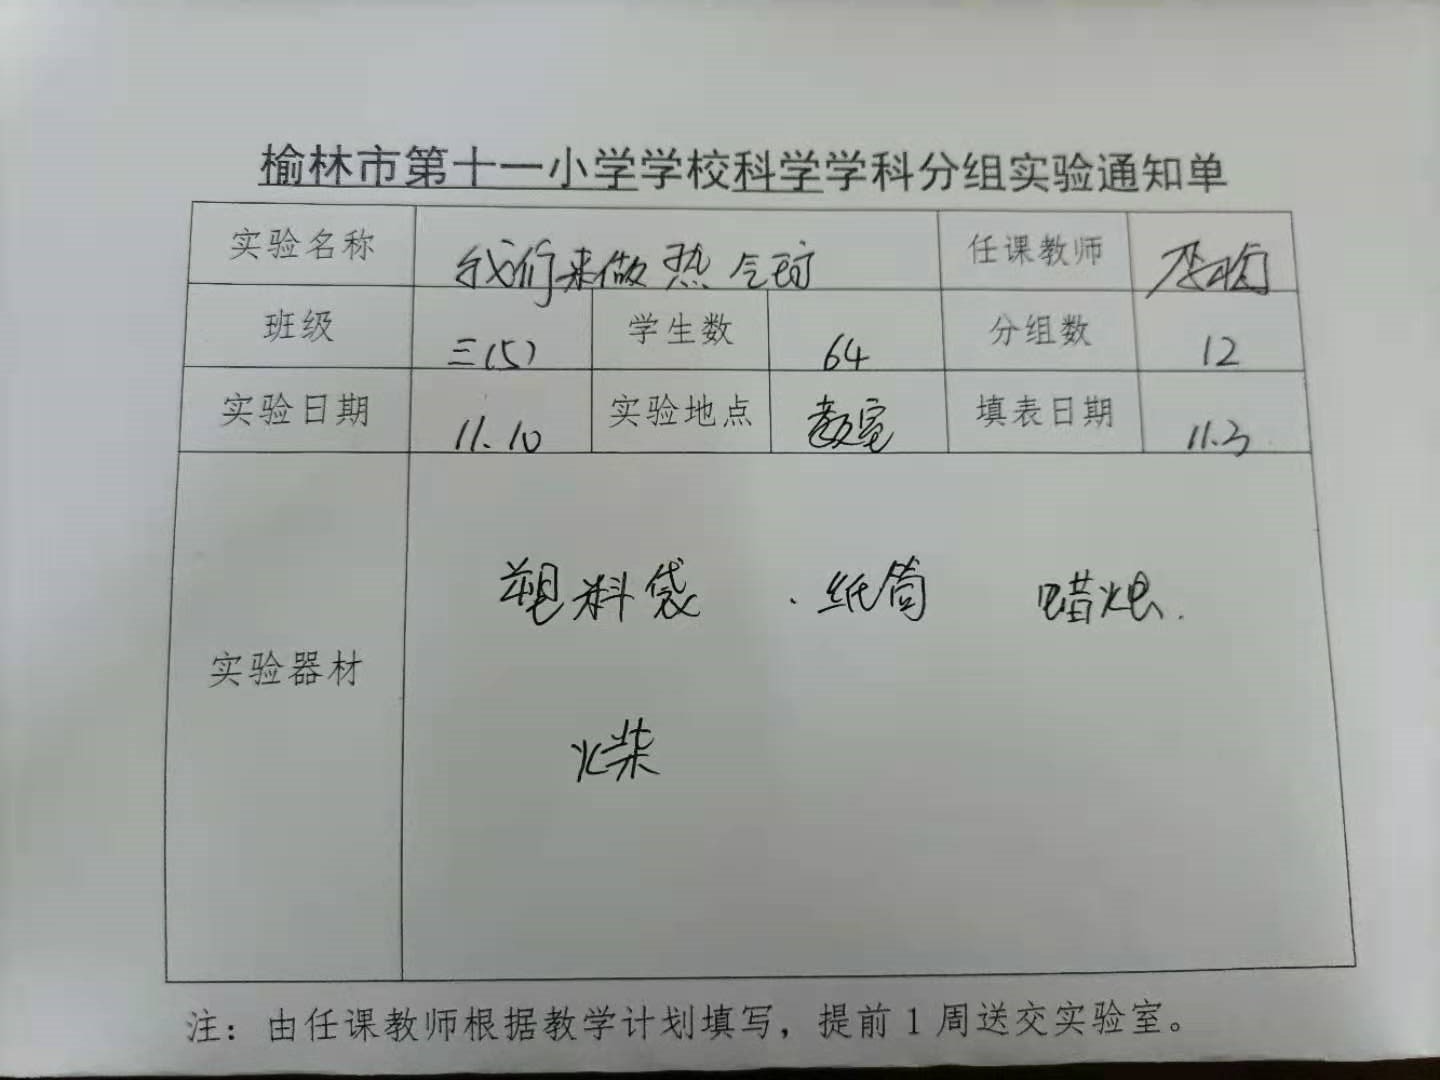 榆林市第十一小学学校科学学科分组实验通知单
实验名称 我们来做热气球 任课教师
班级 三(5) 学生数 64 分组数 12
实验日期 11.10 实验地点 教室 填表日期 11.3
实验器材 塑料袋 、纸筒 蜡烛.
火柴
注：由任课教师根据教学计划填写，提前1周送交实验室。